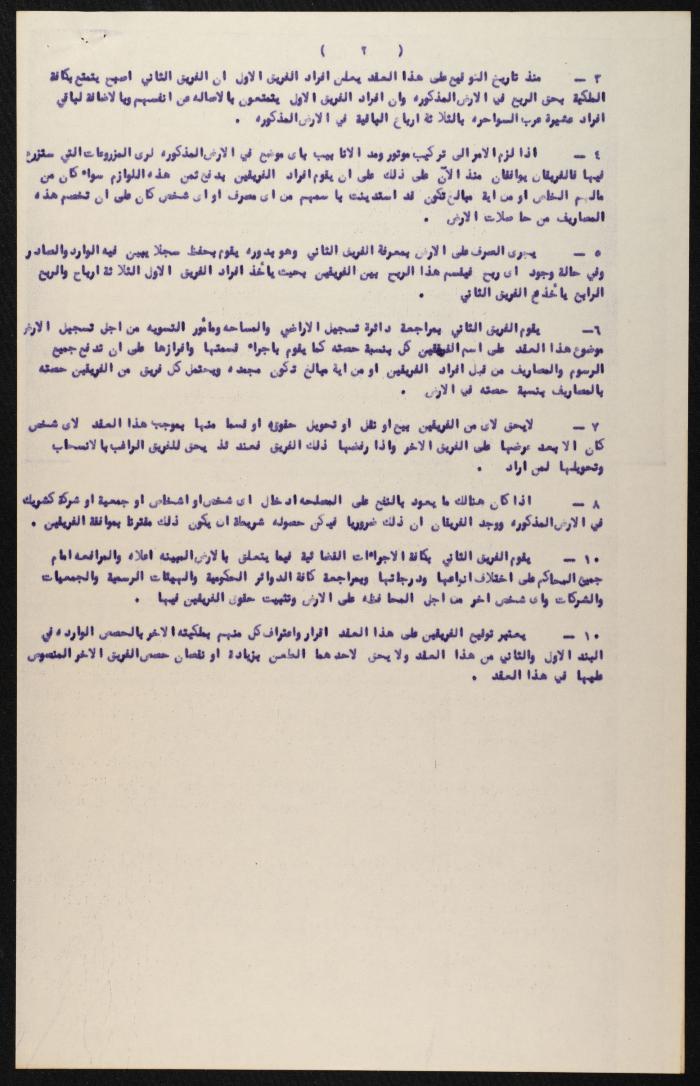 ( ٢ )
٣ — منذ تاريخ التوقيع على هذا العقد يعلن افراد الفريق الاول ان الفريق الثاني اصبح يتمتع بكافة
الملكية بحق الربع في الارض المذكوره وان افراد الفريق الاول يتمتعون بالاصاله عن انفسهم وبالاضافة لباقي
افراد عشيرة عرب السواحره بالثلاثة ارباع الباقية في الارض المذكوره .
٤ — اذا لزم الامر الى تركيب موتور ومد الانابيب باى موضع في الارض المذكوره لرى المزروعات التي ستزرع
فيها فالفريقان يوافقان منذ الآن على ذلك على ان يقوم افراد الفريقين بدفع ثمن هذه اللوازم سواء كان من
مالهم الخاص او من اية مبالغ تكون قد استدينت باسمهم من اى مصرف او اى شخص كان على ان تخصم هذه
المصاريف من حاصلات الارض .
٥ — يجرى الصرف على الارض بمعرفة الفريق الثاني وهو بدوره يقوم بحفظ سجلا يبين فيه الوارد والصادر
وفي حالة وجود اى ربح فيقسم هذا الربح بين الفريقين بحيث يأخذ افراد الفريق الاول الثلاثة ارباح والربح
الرابع يأخذه الفريق الثاني .
٦— يقوم الفريق الثاني بمراجعة دائرة تسجيل الاراضي والمساحه ومأمور التسويه من اجل تسجيل الارض
موضوع هذا العقد على اسم الفريقين كل بنسبة حصته كما يقوم باجراء قسمتها وافرازها على ان تدفع جميع
الرسوم والمصاريف من قبل افراد الفريقين او من اية مبالغ تكون مجمده ويحتمل كل فريق من الفريقين حصته
بالمصاريف بنسبة حصته في الارض .
٧ — لايحق لاى من الفريقين بيع او نقل او تحويل حقوقه او قسما منها بموجب هذا العقد لاى شخص
كان الا بعد عرضها على الفريق الاخر واذا رفضها ذلك الفريق فعند ئذ يحق للفريق الراغب بالانسحاب
وتحويلها لمن اراد .
٨ — اذا كان هنالك ما يعود بالنفع على المصلحه ادخال اى شخص او اشخاص او جمعية او شركة كشريك
في الارض المذكوره ووجد الفريقان ان ذلك ضروريا فيمكن حصوله شريطة ان يكون ذلك مقترنا بموافقة الفريقين .
١٠ — يقوم الفريق الثاني بكافة الاجراءات القضائية فيما يتعلق بالارض المبينه اعلاه والمرافعه امام
جميع المحاكم على اختلاف انواعها ودرجاتها وبمراجعة كافة الدوائر الحكومية والهيئات الرسمية والجمعيات
والشركات واى شخص اخر من اجل المحافظه على الارض وتثبيت حقوق الفريقين فيها .
١٠ — يعتبر توقيع الفريقين على هذا العقد اقرار واعتراف كل منهم بملكيته الاخر بالحصص الوارده في
البند الاول والثاني من هذا العقد ولا يحق لاحدهما الطعن بزيادة او نقصان حصص الفريق الاخر المنصوص
عليها في هذا العقد .